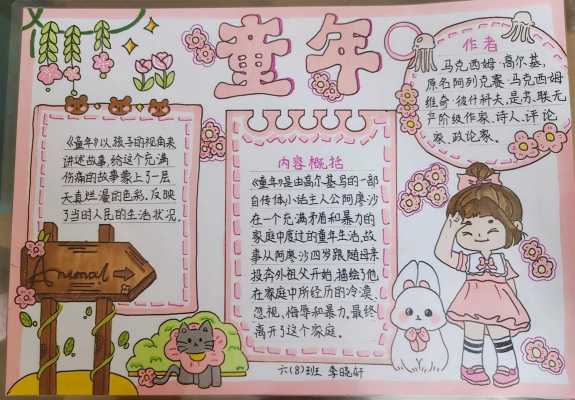 童年
《童年》以孩子的视角来
讲述故事,给这个充满
伤痛的故事蒙上了一层
天真烂漫的色彩,反映
了当时人民的生活状况.
Animal
内容概括
《童年》是由高尔基写的一部
自传体小话主人公阿廖沙
在一个充满矛盾和暴力的
家庭中度过的童年生活,故
事从阿廖沙四岁跟随母亲
投奔外祖父开始,描绘了他
在家庭中所经历的冷漠、
忽视,侮辱和暴力,最终
离开了这个家庭.
作者
马克西姆·高尔基,
原名阿列克赛·马克西姆
维奇·彼什科夫,是苏联无
产阶级作家、诗人、评论
家、政论家.
六(8)班 李晓妍